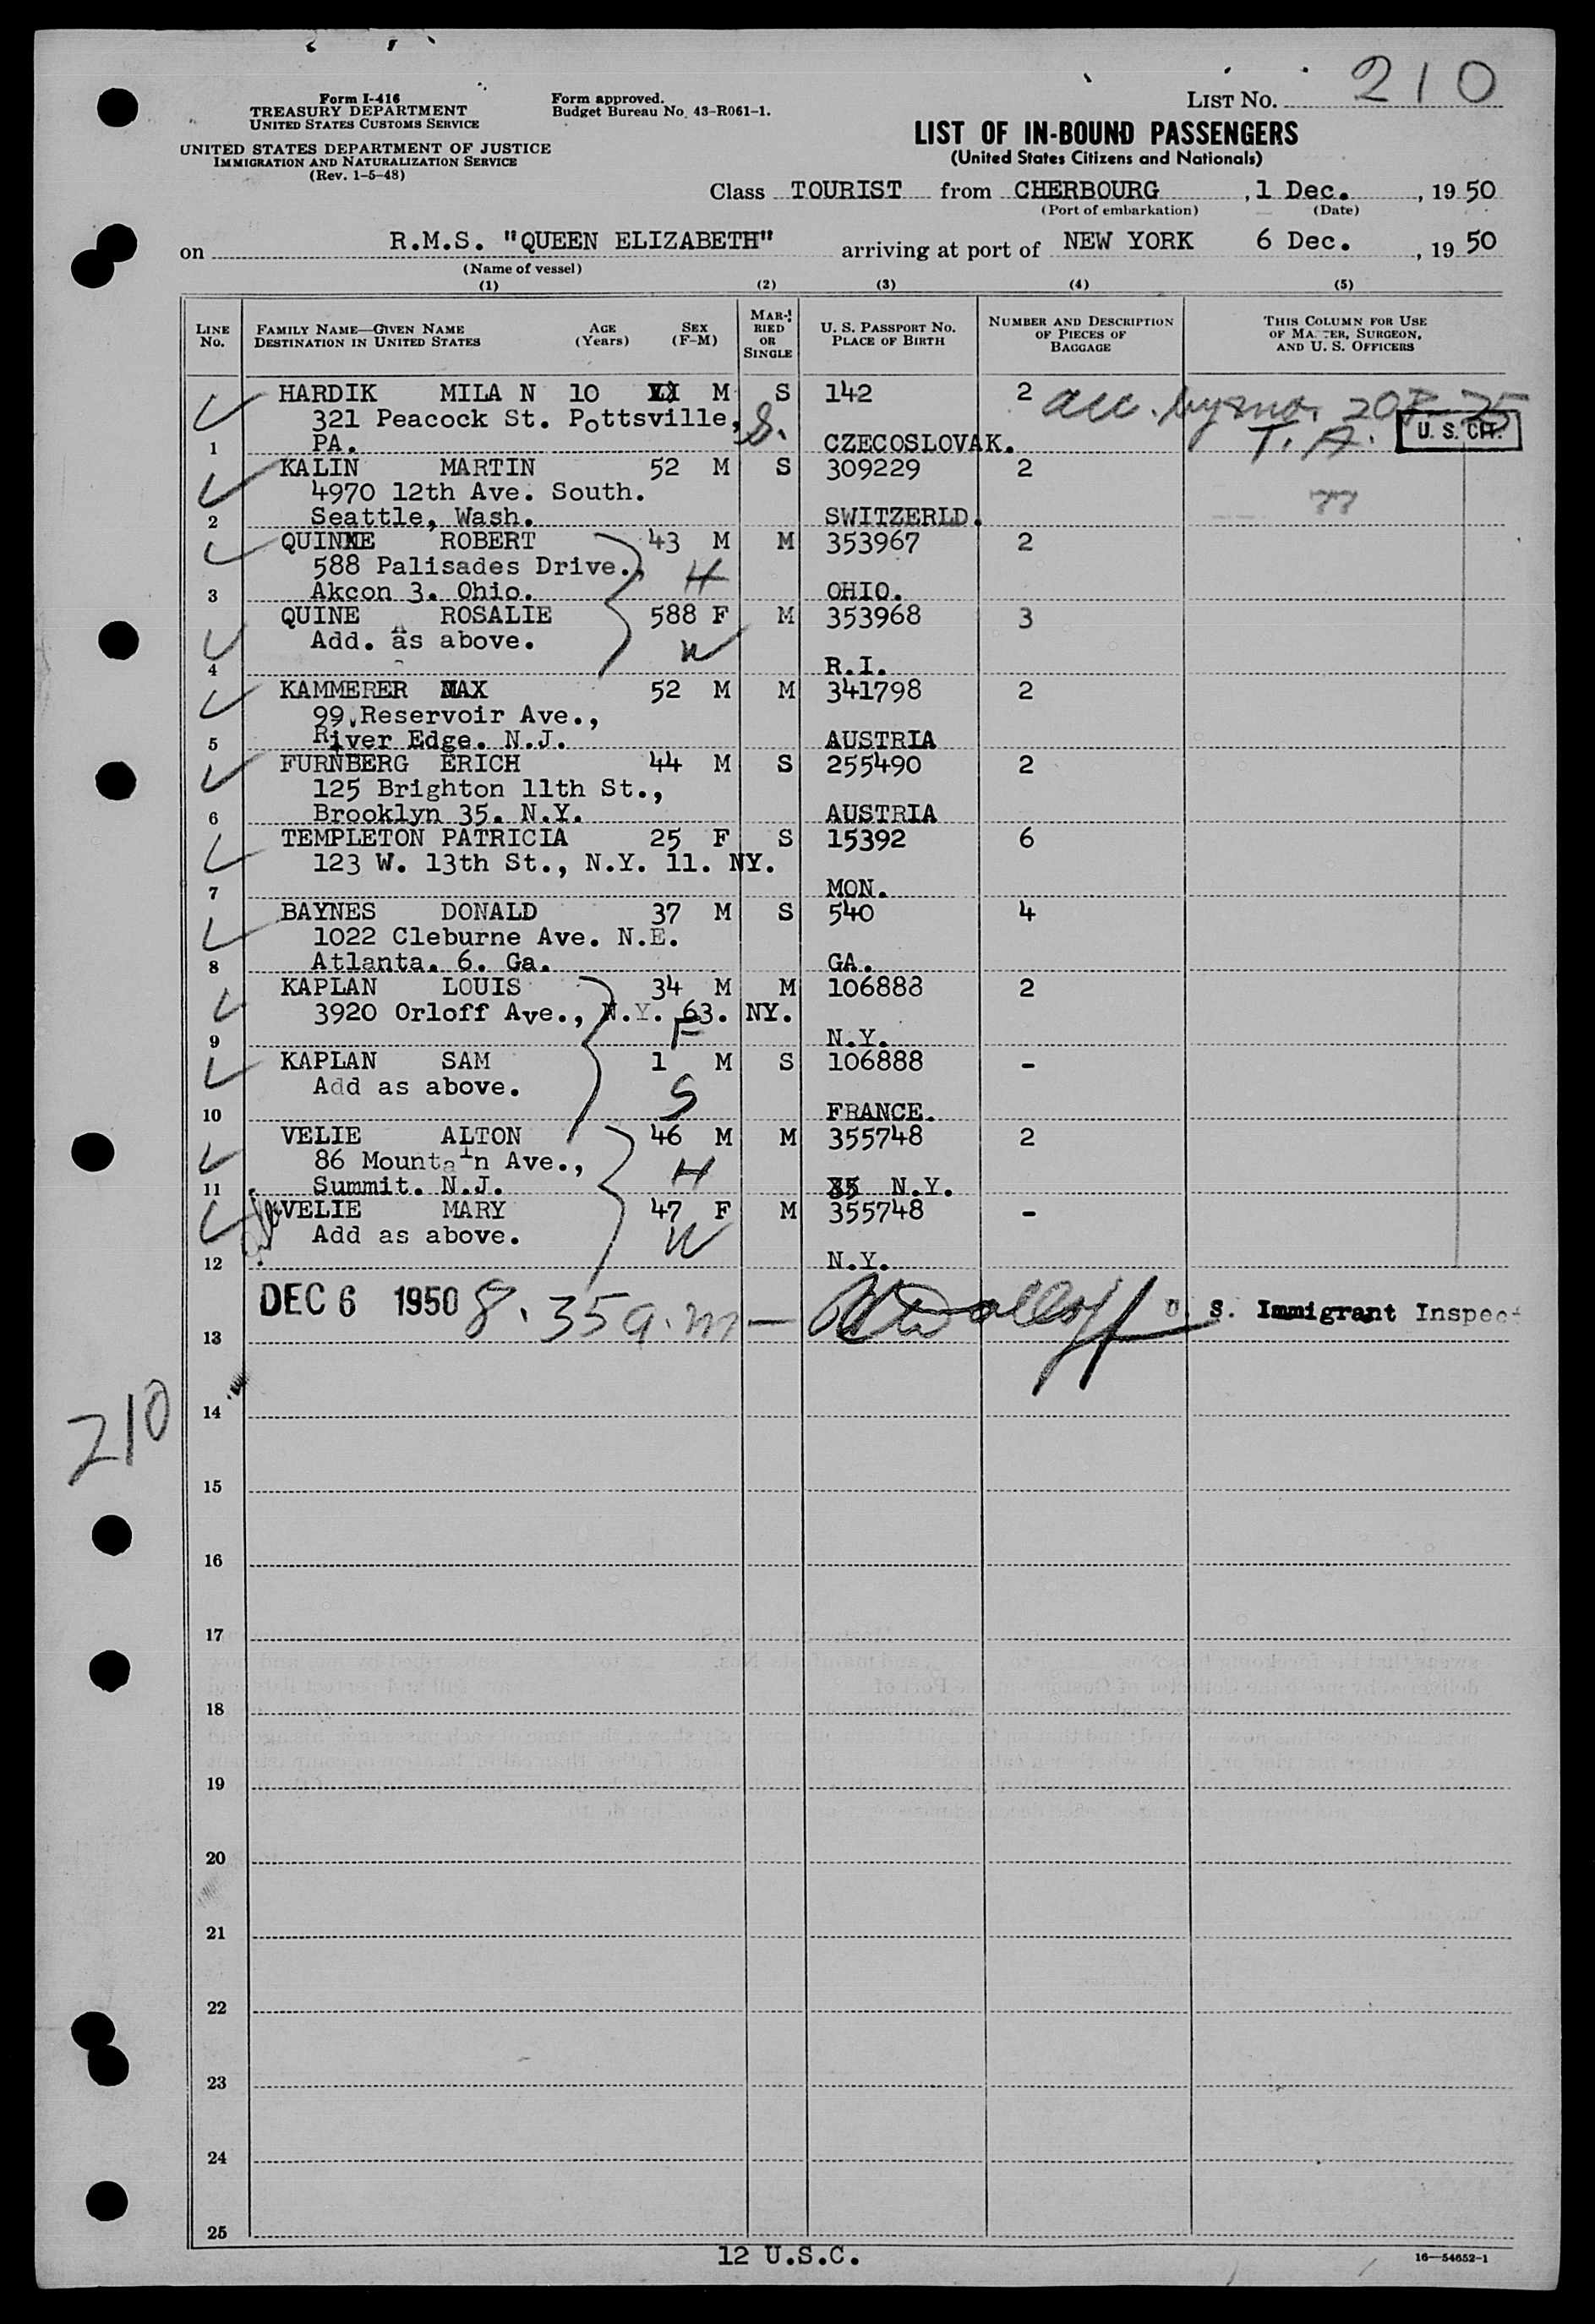 210
Form I-416
TREASURY DEPARTMENT
UNITED STATES CUSTOMS SERVICE
UNITED STATES DEPARTMENT OF JUSTICE
IMMIGRATION AND NATURALIZATION SERVICE
(Rev. 1-5-48)
Form approved.
Budget Bureau No. 43-R061-1.
LIST No. 210
LIST OF IN-BOUND PASSENGERS
(United States Citizens and Nationals)
Class TOURIST from CHERBOURG, 1 Dec., 19 50
(Port of embarkation) (Date)
on R.M.S. "QUEEN ELIZABETH" arriving at port of NEW YORK 6 Dec., 19 50
(Name of vessel)
(1) (2) (3) (4) (5)
LINE No. FAMILY NAME—GIVEN NAME DESTINATION IN UNITED STATES AGE (Years) SEX (F-M) MARRIED OR SINGLE U. S. PASSPORT No. PLACE OF BIRTH NUMBER AND DESCRIPTION OF PIECES OF BAGGAGE THIS COLUMN FOR USE OF MASTER, SURGEON, AND U. S. OFFICERS
HARDIK MILA N 10 M S 142 2 acc. by mo.
321 Peacock St. Pottsville, S. T. A. U. S. CIT.
1 PA. CZECOSLOVAK.
KALIN MARTIN 52 M S 309229 2
4970 12th Ave. South.
2 Seattle, Wash. SWITZERLD.
QUINNE ROBERT 43 M M 353967 2
588 Palisades Drive., H
3 Akcon 3. Ohio. OHIO.
QUINE ROSALIE 588 F M 353968 3
Add. as above. W
4 R.I.
KAMMERER MAX 52 M M 341798 2
99.Reservoir Ave.,
5 River Edge. N.J. AUSTRIA
FURNBERG ERICH 44 M S 255490 2
125 Brighton 11th St.,
6 Brooklyn 35. N.Y. AUSTRIA
TEMPLETON PATRICIA 25 F S 15392 6
123 W. 13th St., N.Y. 11. NY.
7 MON.
BAYNES DONALD 37 M S 540 4
1022 Cleburne Ave. N.E.
8 Atlanta. 6. Ga. GA.
KAPLAN LOUIS 34 M M 106888 2
3920 Orloff Ave., N.Y. 63. NY.
9 F N.Y.
KAPLAN SAM 1 M S 106888 -
Add as above. S
10 FRANCE.
VELIE ALTON 46 M M 355748 2
86 Mountain Ave., H
11 Summit. N.J. N.Y.
VELIE MARY 47 F M 355748 -
Add as above. W
12 N.Y.
DEC 6 1950 8.35 a.m — U. S. Immigrant Inspec
13
14
210
15
16
17
18
19
20
21
22
23
24
25
12 U.S.C.
16—54652-1